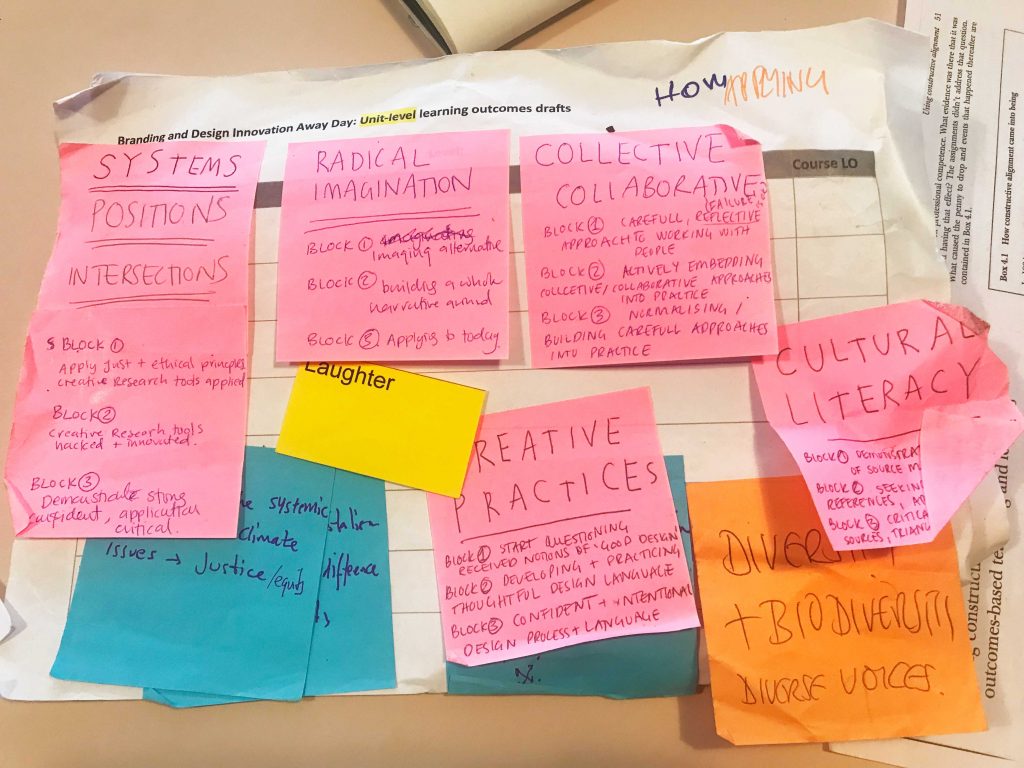 HOW APPLYING
Branding and Design Innovation Away Day: Unit-level learning outcomes drafts
Course LO
SYSTEMS
POSITIONS
INTERSECTIONS
BLOCK ①
Apply Just + ethical principles
creative Research tools applied
BLOCK ②
Creative Research tools
hacked + innovated.
BLOCK ③
Demonstrate strong
confident, application
critical.
RADICAL
IMAGINATION
BLOCK ①
Imaging alternative
BLOCK ② building a whole
narrative around
BLOCK ③ Applying to today
COLLECTIVE
COLLABORATIVE
(FAILURE)
BLOCK ① CAREFULL, REFLECTIVE
APPROACH TO WORKING WITH
PEOPLE
BLOCK ② ACTIVELY EMBEDDING
COLLECTIVE/COLLABORATIVE APPROACHES
INTO PRACTICE
BLOCK ③ NORMALISING /
BUILDING CAREFULL APPROACHES
INTO PRACTICE
CULTURAL
LITERACY
BLOCK ① DEMONSTRAT
OF SOURCE M
BLOCK ② SEEKIN
REFERENCES, AP
BLOCK ③ CRITICA
SOURCES, TRIANG
Laughter
REATIVE
PRACTICES
BLOCK ① START QUESTIONING
RECEIVED NOTIONS OF 'GOOD DESIGN'
BLOCK ② DEVELOPING + PRACTICING,
THOUGHTFUL DESIGN LANGUAGE
BLOCK ③ CONFIDENT + INTENTIONAL
DESIGN PROCESS + LANGUAGE
systemic
climate
issues → Justice/equity
difference
DIVERSITY
+ BIODIVERSITY
DIVERSE VOICES.
Using constructive alignment 51
professional competence. What evidence was there that it was
having that effect? The assignments didn't address that question.
What caused the penny to drop and events that happened thereafter are
contained in Box 4.1.
Box 4.1 How constructive alignment came into being
g construct
outcomes-based te